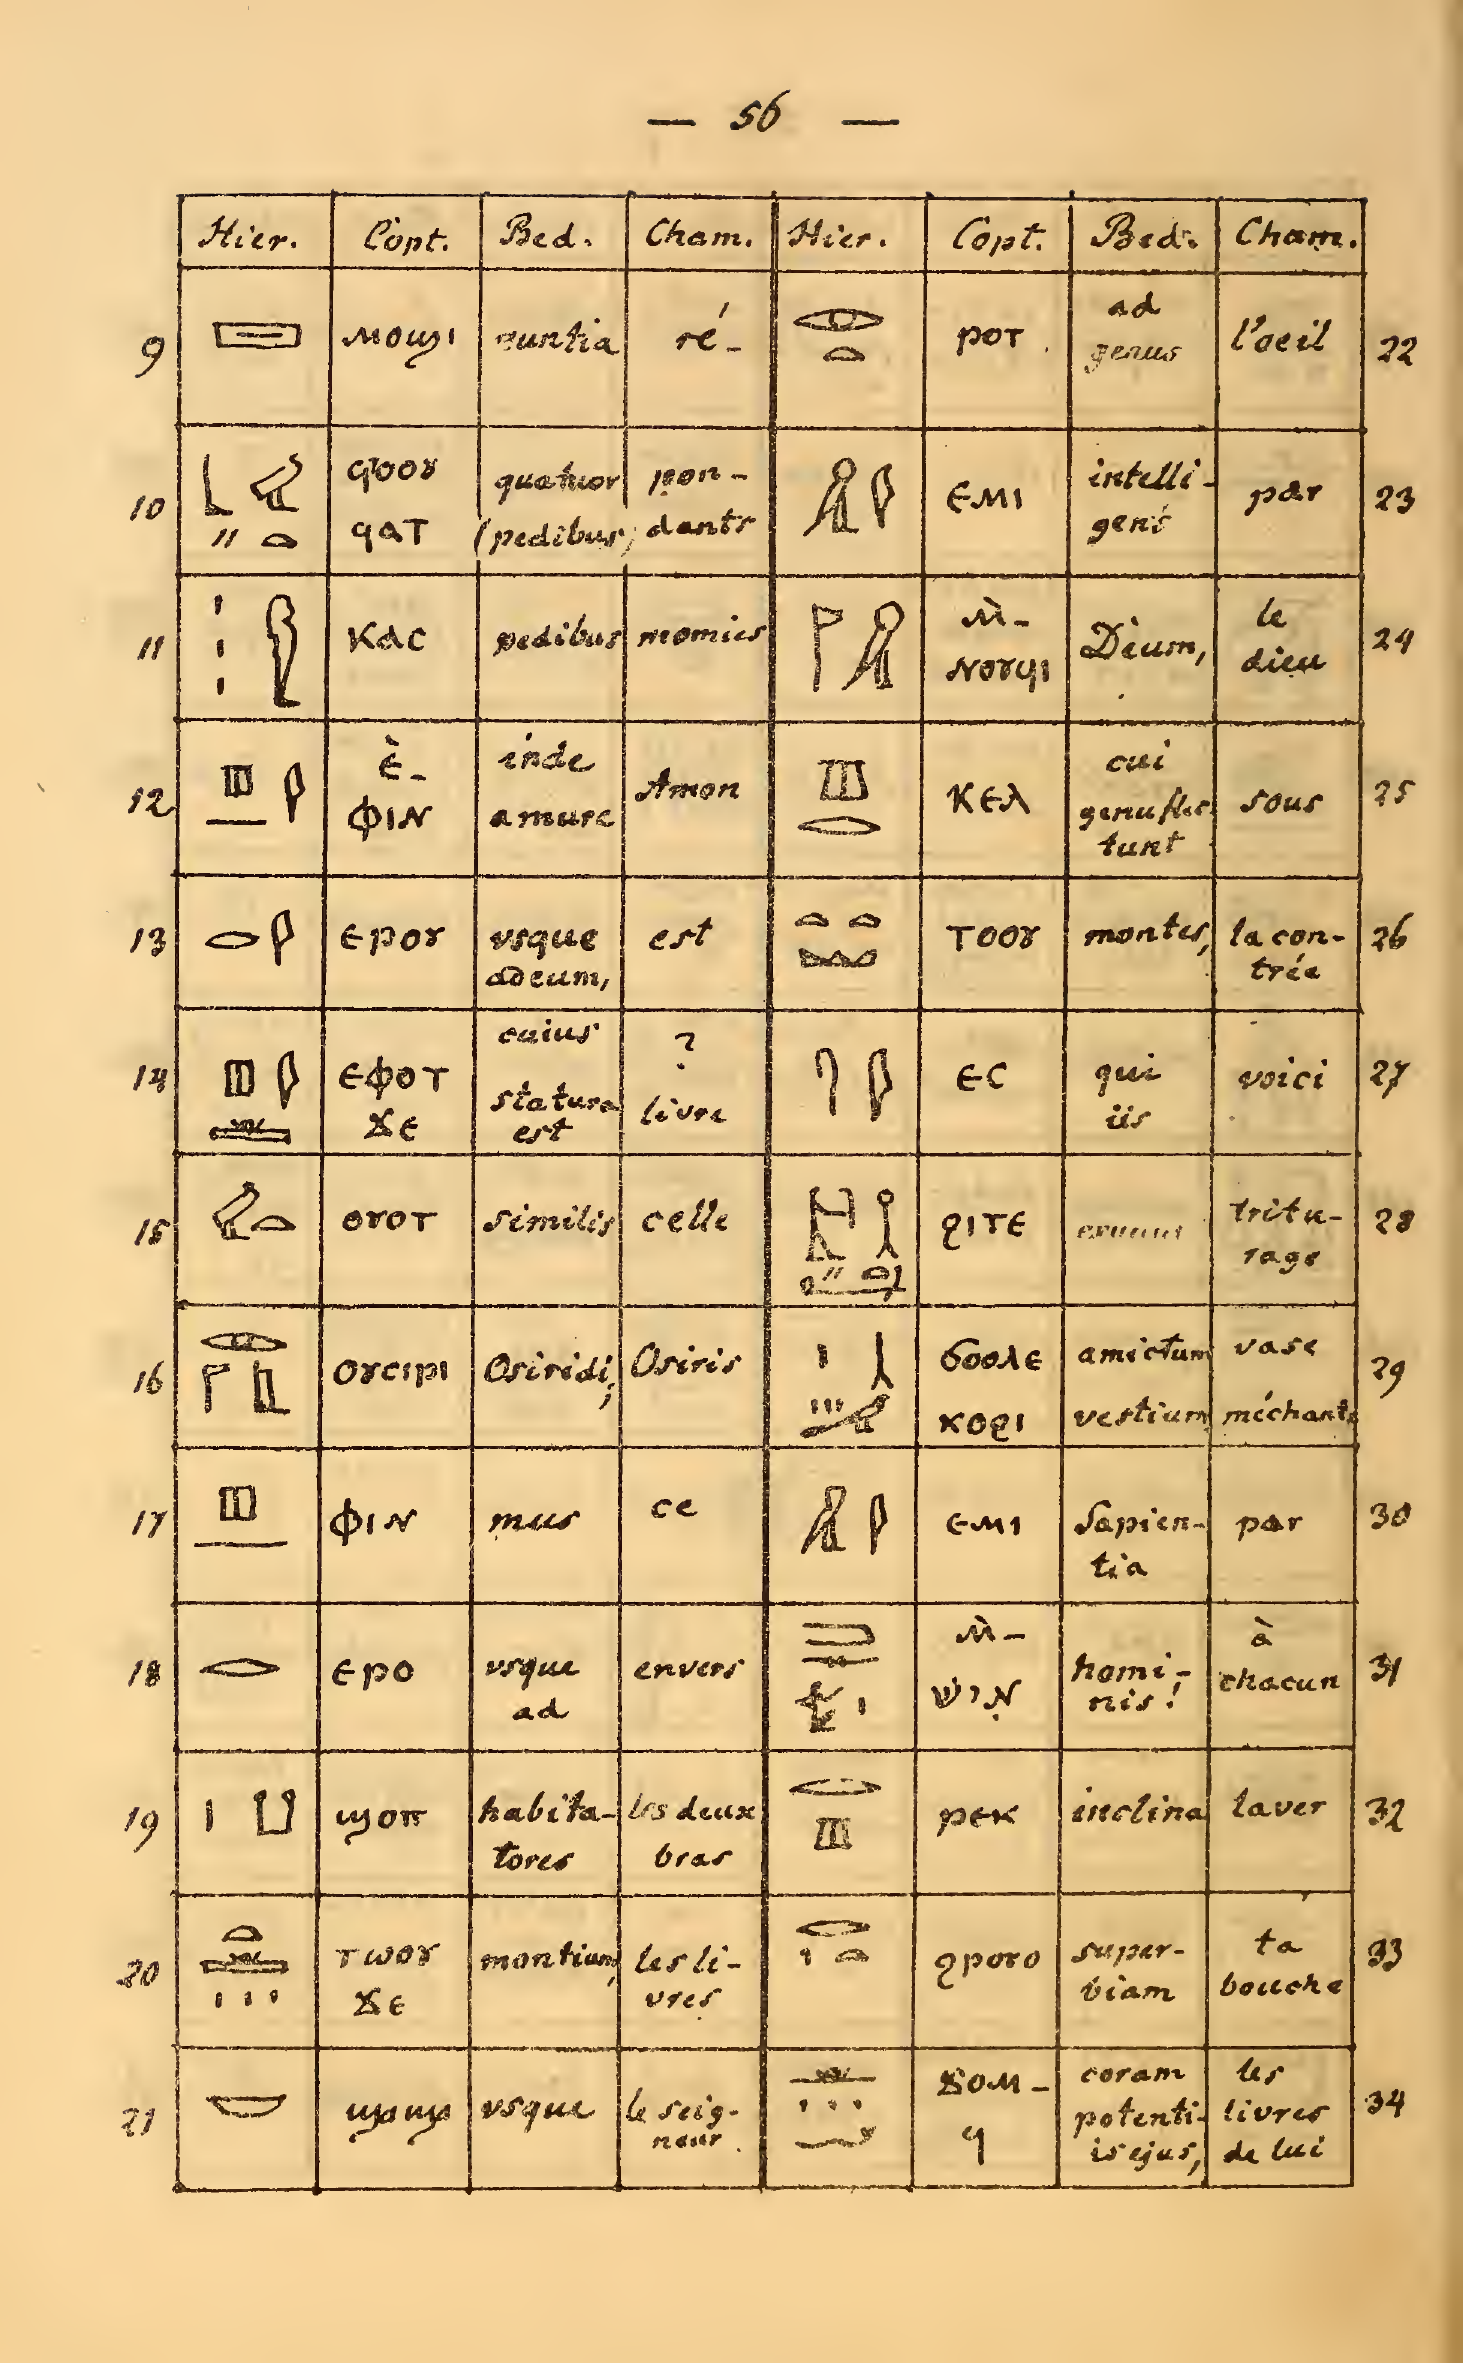 — 56 —
Hier. Copt. Bed. Cham. Hier. Copt. Bed. Cham.
9 ⲙⲟϣⲓ euntia ré- ⲣⲟⲧ ad genus l'oeil 22
10 ϥⲧⲟⲟⲩ ϥⲁⲧ quatuor (pedibus) pon- dants ⲉⲙⲓ intelli- gent par 23
11 ⲕⲁⲥ pedibus momies ⲙ̀- ⲛⲟⲩϥⲓ Deum, le dieu 24
12 ⲉ̀- ⲫⲓⲛ inde a mure Amon ⲕⲉⲗ cui genuflec tunt sous 25
13 ⲉⲣⲟⲩ usque ad eum, est ⲧⲟⲟⲩ montes, la con- trée 26
14 ⲉⲫⲟⲧ ϫⲉ cuius statura est ? livre ⲉⲥ qui iis voici 27
15 ⲟⲩⲟⲧ similis celle ϩⲓⲧⲉ tritu- rage 28
16 ⲟⲩⲥⲓⲣⲓ Osiridi; Osiris ϭⲟⲟⲗⲉ ⲕⲟϩⲓ amictum vestium vase méchants 29
17 ⲫⲓⲛ mus ce ⲉⲙⲓ Sapien- tia par 30
18 ⲉⲣⲟ usque ad envers ⲙ̀- אִישׁ homi- nis! à chacun 31
19 ϣⲟⲡ habita- tores les deux bras ⲣⲉⲕ inclina laver 32
20 ⲧⲱⲟⲩ ϫⲉ montium, les li- vres ϩⲣⲟⲩⲟ super- biam ta bouche 33
21 ϣⲁϣⲁ usque le seig- neur ϫⲟⲙ- ϥ coram potenti- is ejus, les livres de lui 34